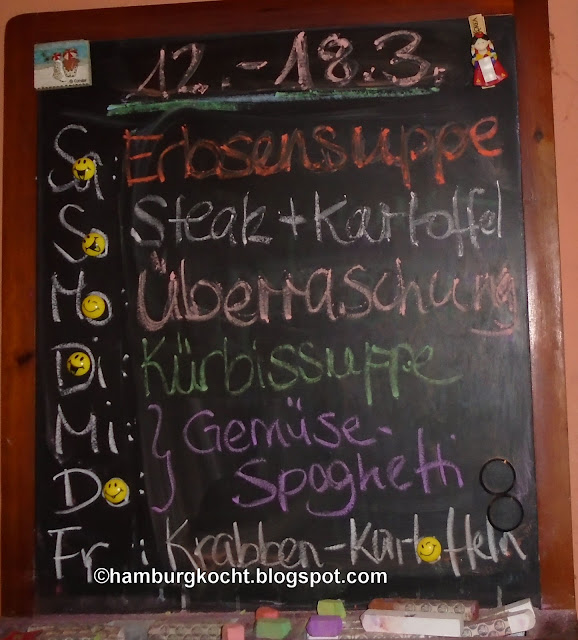 12.-18.3.
Sa: Erbsensuppe
So: Steak + Kartoffel
Mo: Überraschung
Di: Kürbissuppe
Mi: } Gemüse-
Do: } Spaghetti
Fr: Krabben-Kartoffeln
©hamburgkocht.blogspot.com